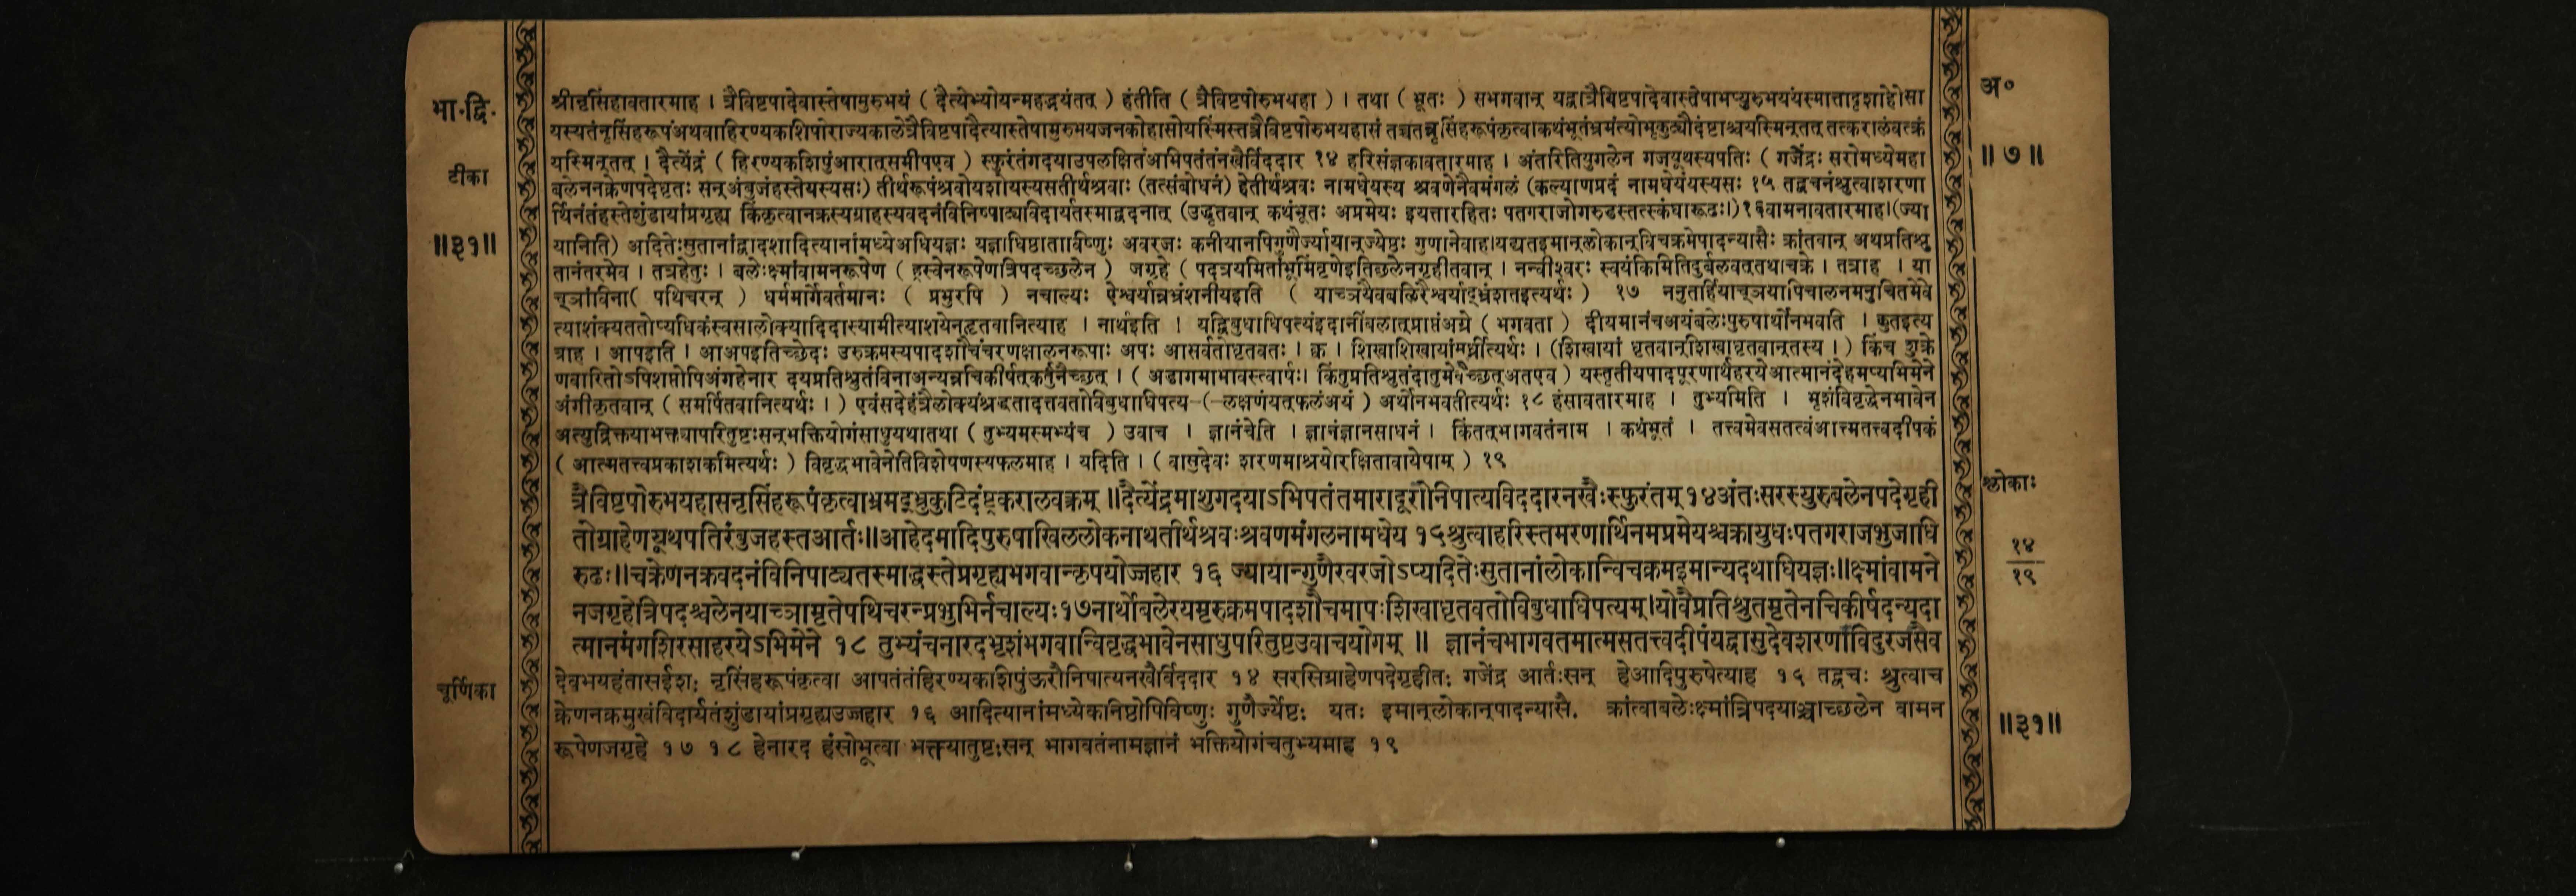 भा.द्वि.
टीका
॥३१॥
चूर्णिका
श्रीनृसिंहावतारमाह । त्रैविष्टपादेवास्तेषामुरुभयं ( दैत्येभ्योयन्महद्भयंतत् ) हंतीति ( त्रैविष्टपोरुभयहा ) । तथा ( भूतः ) सभगवान् यद्वात्रैविष्टपादेवास्तेषामप्युरुभयंयस्मात्तादृशाहेोसा
यस्यतंनृसिंहरूपंअथवाहिरण्यकशिपोराज्यकालेत्रैविष्टपादैत्यास्तेषामुरुभयजनकोहासोयस्मिंस्तत्रैविष्टपोरुभयहासं तच्चतन्नृसिंहरूपंकृत्वाकथंभूतंभ्रमंत्योभृकुट्यौदंष्ट्राश्चयस्मिन्तत् तत्करालंवक्त्रं
यस्मिन्तत् । दैत्येंद्रं ( हिरण्यकशिपुंआरात्समीपएव ) स्फुरंतंगदयाउपलक्षितंअभिपतंतंनखैर्विददार १४ हरिसंज्ञकावतारमाह । अंतरितियुगलेन गजयूथस्यपतिः ( गजेंद्रः सरोमध्येमहा
बलेननक्रेणपदेधृतः सन्अंबुजंहस्तेयस्यसः) तीर्थरूपंश्रवोयशोयस्यसतीर्थश्रवाः (तत्संबोधनं) हेतीर्थश्रवः नामधेयस्य श्रवणेनैवमंगलं (कल्याणप्रदं नामधेयंयस्यसः १५ तद्वचनंश्रुत्वाशरणा
र्थिनंतंहस्तेशुंडायांप्रगृह्य किंकृत्वानक्रस्यग्राहस्यवदनंविनिष्पाट्यविदार्यतस्माद्वदनात् (उद्धृतवान् कथंभूतः अप्रमेयः इयत्तारहितः पतगराजोगरुडस्तत्स्कंधारूढः।)१६वामनावतारमाह।(ज्या
यानिति) अदितेःसुतानांद्वादशादित्यानांमध्येअधियज्ञः यज्ञाधिष्ठाताविष्णुः अवरजः कनीयानपिगुणैर्ज्यायान्ज्येष्ठः गुणानेवाह।यद्यतइमान्लोकान्विचक्रमेपादन्यासैः क्रांतवान् अथप्रतिश्रु
तानंतरमेव । तत्रहेतुः । बलेःक्ष्मांवामनरूपेण ( ह्रस्वेनरूपेणत्रिपदच्छलेन ) जगृहे ( पदत्रयमितांभूमिंवृणेइतिछलेनगृहीतवान् । नन्वीश्वरः स्वयंकिमितिदुर्बलवत्तथाचक्रे । तत्राह । या
च्ञांविना( पथिचरन् ) धर्ममार्गेवर्तमानः ( प्रभुरपि ) नचाल्यः ऐश्वर्यान्नभ्रंशनीयइति ( याच्ञयैवबलिरैश्वर्याद्भ्रंशतइत्यर्थः ) १७ ननुतर्हियाच्ञयापिचालनमनुचितमेवे
त्याशंक्यततोप्यधिकंस्वसालोक्यादिदास्यामीत्याशयेनहृतवानित्याह । नार्थइति । यद्विबुधाधिपत्यंइदानींबलात्प्राप्तंअग्रे ( भगवता ) दीयमानंचअयंबलेःपुरुषार्थोनभवति । कुतइत्य
त्राह । आपइति । आअपइतिच्छेदः उरुक्रमस्यपादशौचंचरणक्षालनरूपाः अपः आसर्वतोधृतवतः । क्व । शिखाशिखायांमूर्ध्नीत्यर्थः । (शिखायां धृतवान्शिखाधृतवान्तस्य । ) किंच शुक्रे
णवारितोऽपिशप्तोपिअंगहेनारदयप्रतिश्रुतंविनाअन्यन्नचिकीर्षत्कर्तुंनैच्छत् । ( अडागमाभावस्त्वार्षः। किंतुप्रतिश्रुतंदातुमेवैच्छत्अतएव ) यस्तृतीयपादपूरणार्थंहरयेआत्मानंदेहमप्यभिमेने
अंगीकृतवान् ( समर्पितवानित्यर्थः । ) एवंसदेहंत्रैलोक्यंश्रद्धतादत्तवतोविबुधाधिपत्य-(-लक्षणंयत्फलंअयं ) अर्थोनभवतीत्यर्थः १८ हंसावतारमाह । तुभ्यमिति । भृशंविवृद्धेनभावेन
अत्युद्रिक्तयाभक्त्यापरितुष्टःसन्भक्तियोगंसाधुयथातथा ( तुभ्यमस्मभ्यंच ) उवाच । ज्ञानंचेति । ज्ञानंज्ञानसाधनं । किंतत्भागवतंनाम । कथंभूतं । तत्त्वमेवसतत्वंआत्त्मतत्त्वदीपकं
( आत्मतत्त्वप्रकाशकमित्यर्थः ) विवृद्धभावेनेतिविशेषणस्यफलमाह । यदिति । ( वासुदेवः शरणमाश्रयोरक्षितावायेषाम् ) १९
त्रैविष्टपोरुभयहासनृसिंहरूपंकृत्वाभ्रमद्भ्रुकुटिदंष्ट्रकरालवक्त्रम् ॥दैत्येंद्रमाशुगदयाऽभिपतंतमारादूरौनिपात्यविददारनखैःस्फुरंतम्१४अंतःसरस्युरुबलेनपदेगृही
तोग्राहेणयूथपतिरंबुजहस्तआर्तः॥आहेदमादिपुरुषाखिललोकनाथतीर्थश्रवःश्रवणमंगलनामधेय १५श्रुत्वाहरिस्तमरणार्थिनमप्रमेयश्चक्रायुधःपतगराजभुजाधि
रुढः॥चक्रेणनक्रवदनंविनिपाट्यतस्माद्धस्तेप्रगृह्यभगवान्कृपयोज्जहार १६ ज्यायान्गुणैरवरजोऽप्यदितेःसुतानांलोकान्विचक्रमइमान्यदथाधियज्ञः॥क्ष्मांवामने
नजगृहेत्रिपदश्चलेनयाच्ञामृतेपथिचरन्प्रभुभिर्नचाल्यः१७नार्थोबलेरयमुरुक्रमपादशौचमापःशिखाधृतवतोविबुधाधिपत्यम्।योवैप्रतिश्रुतमृतेनचिकीर्षदन्यदा
त्मानमंगशिरसाहरयेऽभिमेने १८ तुभ्यंचनारदभृशंभगवान्विवृद्धभावेनसाधुपरितुष्टउवाचयोगम् ॥ ज्ञानंचभागवतमात्मसतत्त्वदीपंयद्वासुदेवशरणाविदुरंजसैव
देवभयहंतासईशः नृसिंहरूपंकृत्वा आपतंतंहिरण्यकशिपुंऊरौनिपात्यनखैर्विददार १४ सरसिग्राहेणपदेगृहीतः गजेंद्र आर्तःसन् हेआदिपुरुषेत्याह १५ तद्वचः श्रुत्वाच
क्रेणनक्रमुखंविदार्यतंशुंडायांप्रगृह्यउज्जहार १६ आदित्यानांमध्येकनिष्ठोपिविष्णुः गुणैर्ज्येष्ठः यतः इमान्लोकान्पादन्यासै. क्रांत्वाबलेःक्ष्मांत्रिपदयाञ्चाच्छलेन वामन
रूपेणजगृहे १७ १८ हेनारद हंसोभूत्वा भक्त्यातुष्टःसन् भागवतंनामज्ञानं भक्तियोगंचतुभ्यमाह १९
अ०
॥७॥
श्लोकाः
१४
१९
॥३१॥